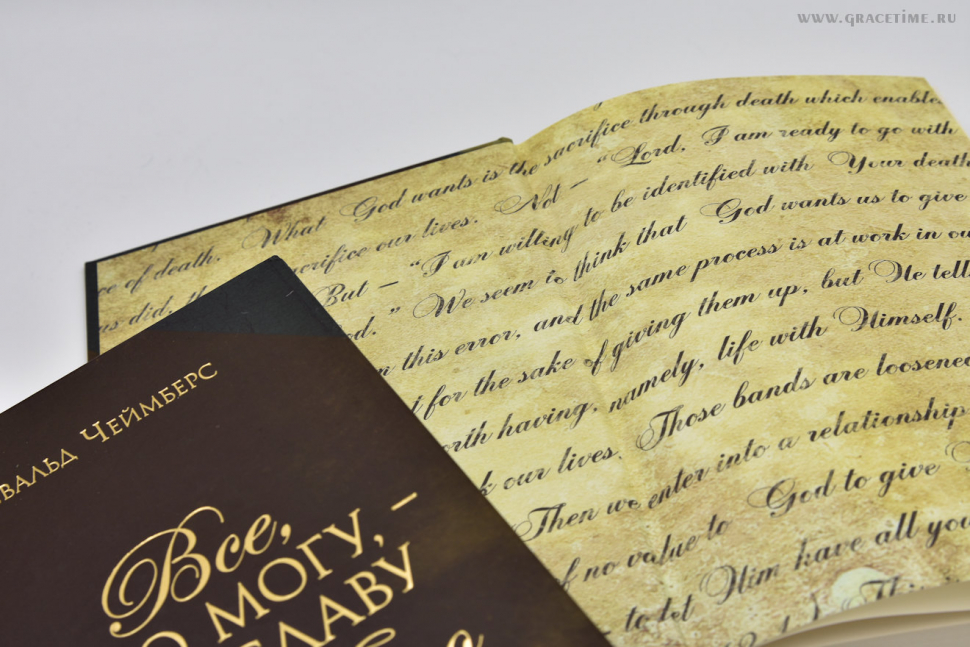 WWW.GRACETIME.RU
sacrifice through death which enable
ce of death. What God wants is the
"Lord, I am ready to go with
as did, sacrifice our lives. Not —
to be identified with Your death
But — "I am willing
God wants us to give
od." We seem to think that
n this error, and the same process is at work in ou
for the sake of giving them up, but He tells
orth having, namely, life with Himself.
k our lives. Those bands are loosened
"Then we enter into a relationship
of no value to God to give
— to let Him have all you
This
ВАЛЬД ЧЕЙМБЕРС
Все,
О МОГУ, –
СЛАВУ